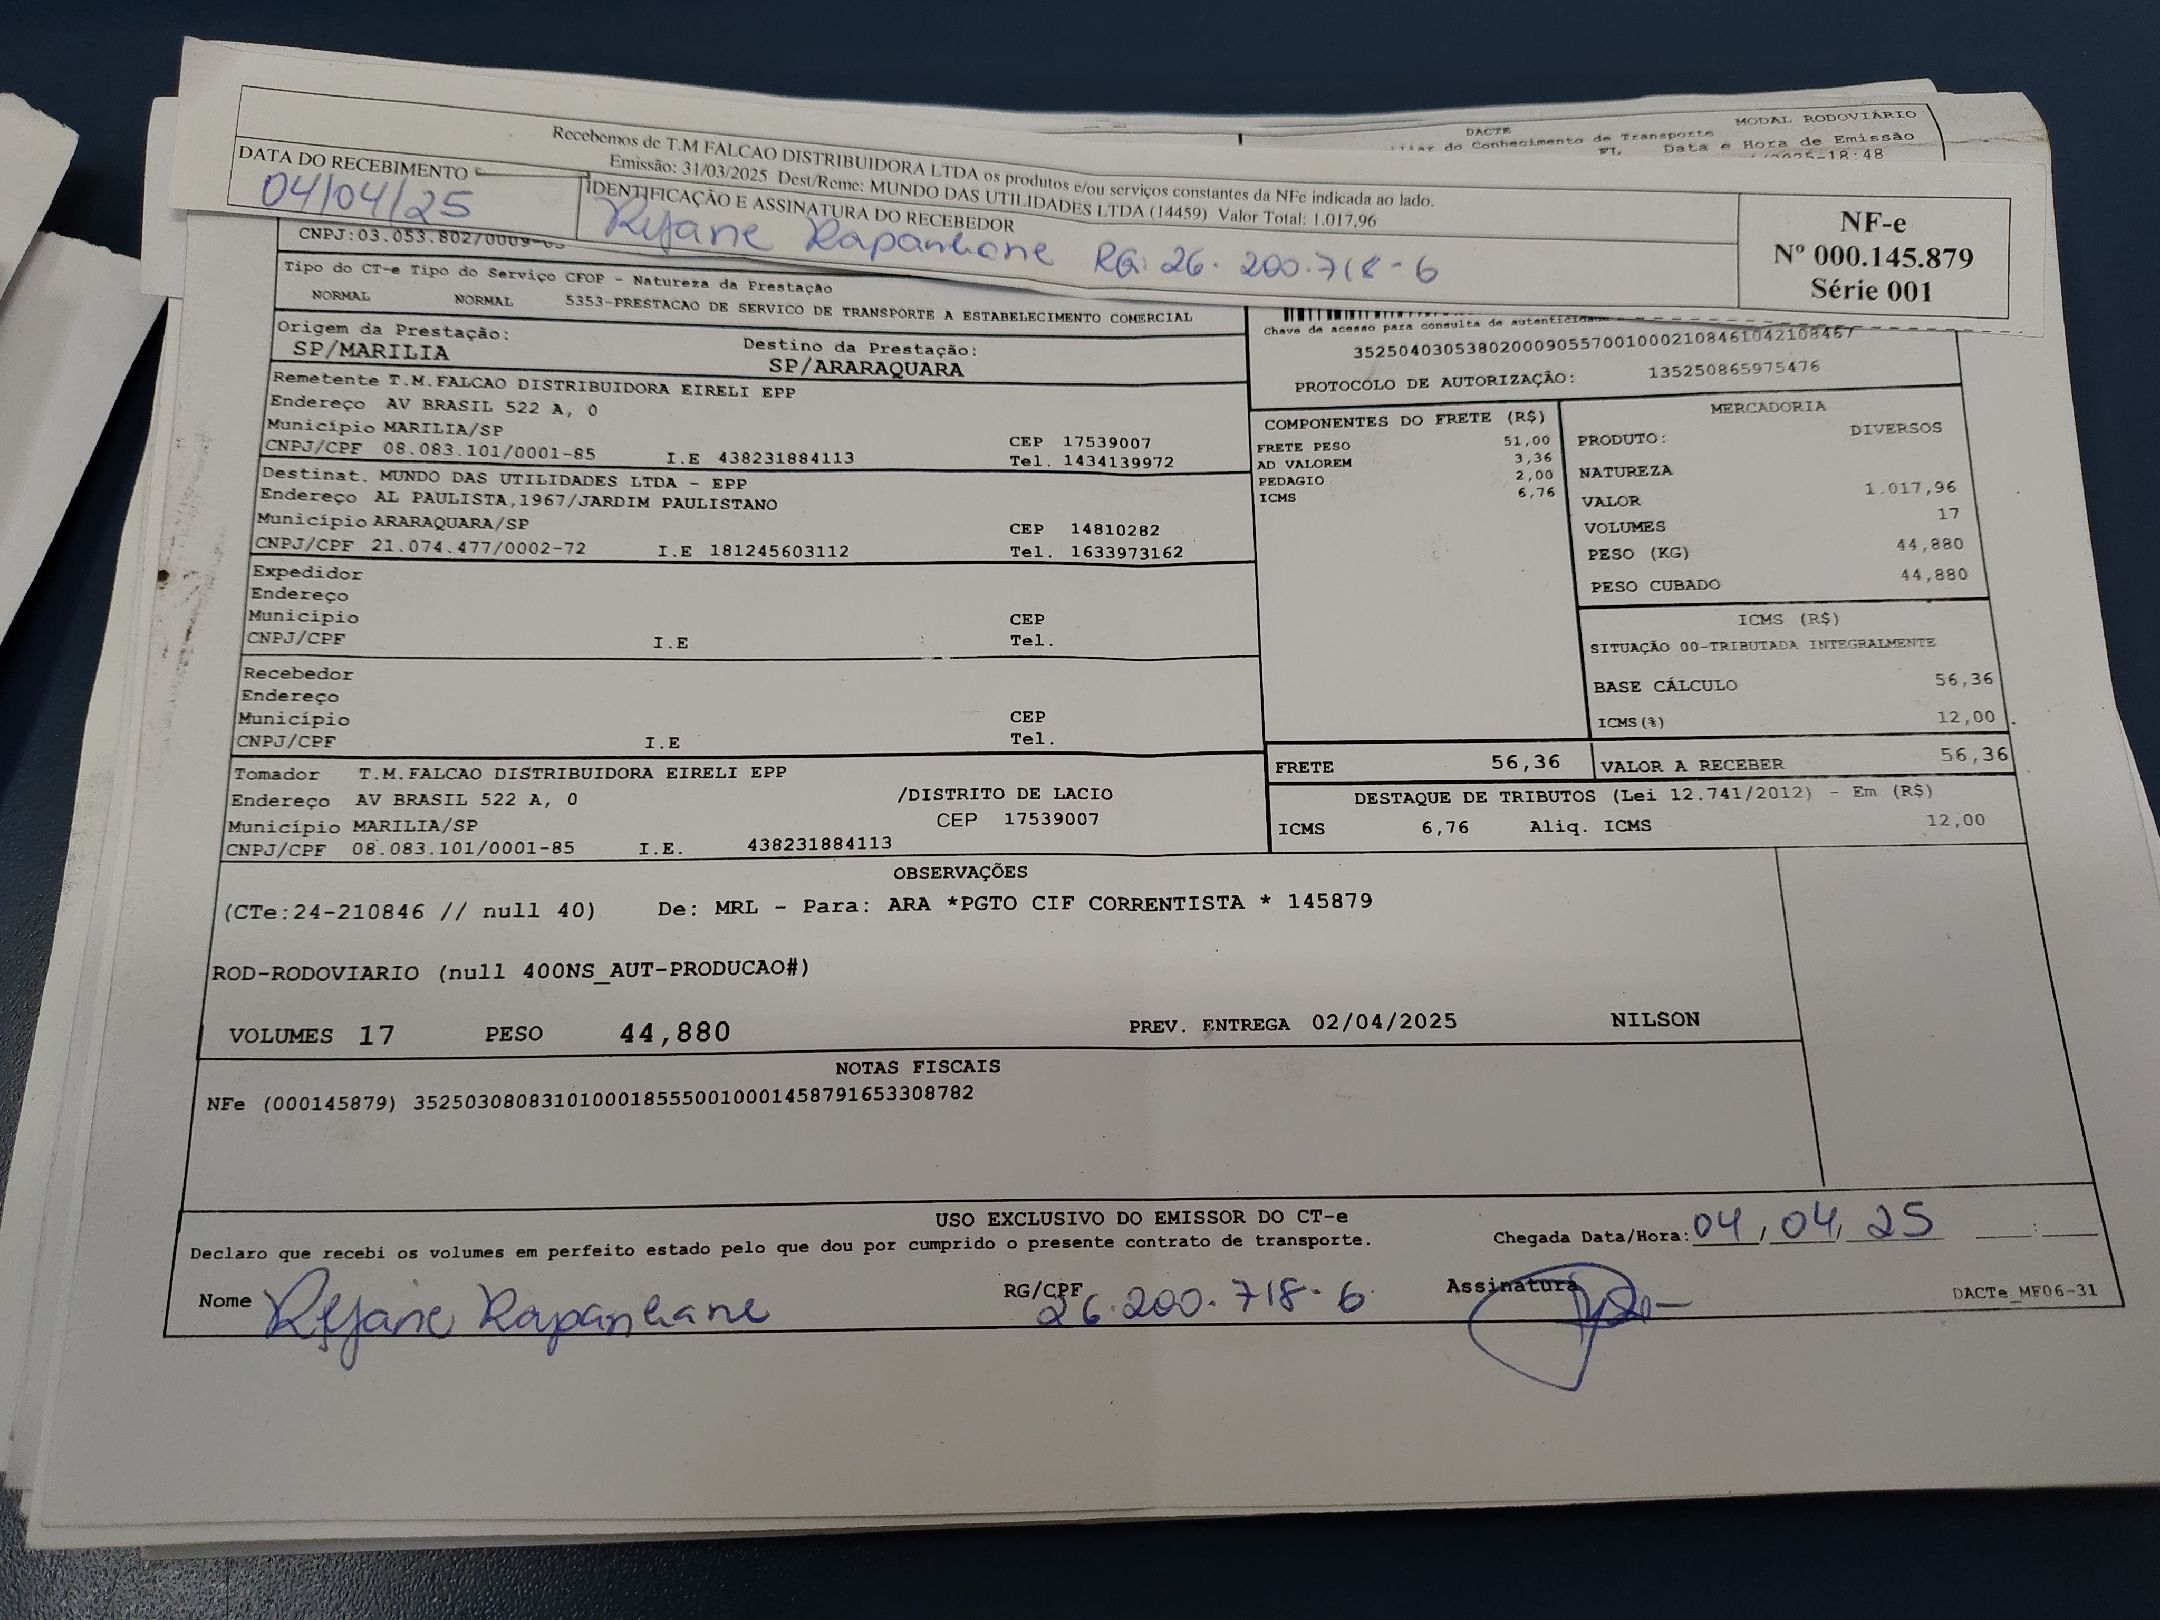 DACTE
MODAL RODOVIÁRIO
do Conhecimento de Transporte
FL Data e Hora de Emissão
/2025-18:48
Recebemos de T.M FALCAO DISTRIBUIDORA LTDA os produtos e/ou serviços constantes da NFe indicada ao lado.
Emissão: 31/03/2025 Dest/Reme: MUNDO DAS UTILIDADES LTDA (14459) Valor Total: 1.017,96
DATA DO RECEBIMENTO
04/04/25
IDENTIFICAÇÃO E ASSINATURA DO RECEBEDOR
Rejane Rapanhane RG: 26.200.718-6
NF-e
Nº 000.145.879
Série 001
CNPJ:03.053.802/0009-
Tipo do CT-e Tipo do Serviço CFOP - Natureza da Prestação
NORMAL NORMAL 5353-PRESTACAO DE SERVICO DE TRANSPORTE A ESTABELECIMENTO COMERCIAL
Origem da Prestação: Destino da Prestação:
SP/MARILIA SP/ARARAQUARA
Chave de acesso para consulta de autenticidade
35250403053802000905570010002108461042108467
PROTOCOLO DE AUTORIZAÇÃO: 135250865975476
Remetente T.M.FALCAO DISTRIBUIDORA EIRELI EPP
Endereço AV BRASIL 522 A, 0
Município MARILIA/SP CEP 17539007
CNPJ/CPF 08.083.101/0001-85 I.E 438231884113 Tel. 1434139972
Destinat. MUNDO DAS UTILIDADES LTDA - EPP
Endereço AL PAULISTA,1967/JARDIM PAULISTANO
Município ARARAQUARA/SP CEP 14810282
CNPJ/CPF 21.074.477/0002-72 I.E 181245603112 Tel. 1633973162
Expedidor
Endereço
Município CEP
CNPJ/CPF I.E Tel.
Recebedor
Endereço
Município CEP
CNPJ/CPF I.E Tel.
Tomador T.M.FALCAO DISTRIBUIDORA EIRELI EPP
Endereço AV BRASIL 522 A, 0 /DISTRITO DE LACIO
Município MARILIA/SP CEP 17539007
CNPJ/CPF 08.083.101/0001-85 I.E. 438231884113
COMPONENTES DO FRETE (R$)
FRETE PESO 51,00
AD VALOREM 3,36
PEDAGIO 2,00
ICMS 6,76
MERCADORIA
PRODUTO: DIVERSOS
NATUREZA
VALOR 1.017,96
VOLUMES 17
PESO (KG) 44,880
PESO CUBADO 44,880
ICMS (R$)
SITUAÇÃO 00-TRIBUTADA INTEGRALMENTE
BASE CÁLCULO 56,36
ICMS(%) 12,00
FRETE 56,36 VALOR A RECEBER 56,36
DESTAQUE DE TRIBUTOS (Lei 12.741/2012) - Em (R$)
ICMS 6,76 Aliq. ICMS 12,00
OBSERVAÇÕES
(CTe:24-210846 // null 40) De: MRL - Para: ARA *PGTO CIF CORRENTISTA * 145879
ROD-RODOVIARIO (null 400NS_AUT-PRODUCAO#)
VOLUMES 17 PESO 44,880 PREV. ENTREGA 02/04/2025 NILSON
NOTAS FISCAIS
NFe (000145879) 35250308083101000185550010001458791653308782
USO EXCLUSIVO DO EMISSOR DO CT-e
Declaro que recebi os volumes em perfeito estado pelo que dou por cumprido o presente contrato de transporte.
Chegada Data/Hora: 04/04/25 :
Nome Rejane Rapanhane RG/CPF 26.200.718-6 Assinatura
DACTe_MF06-31